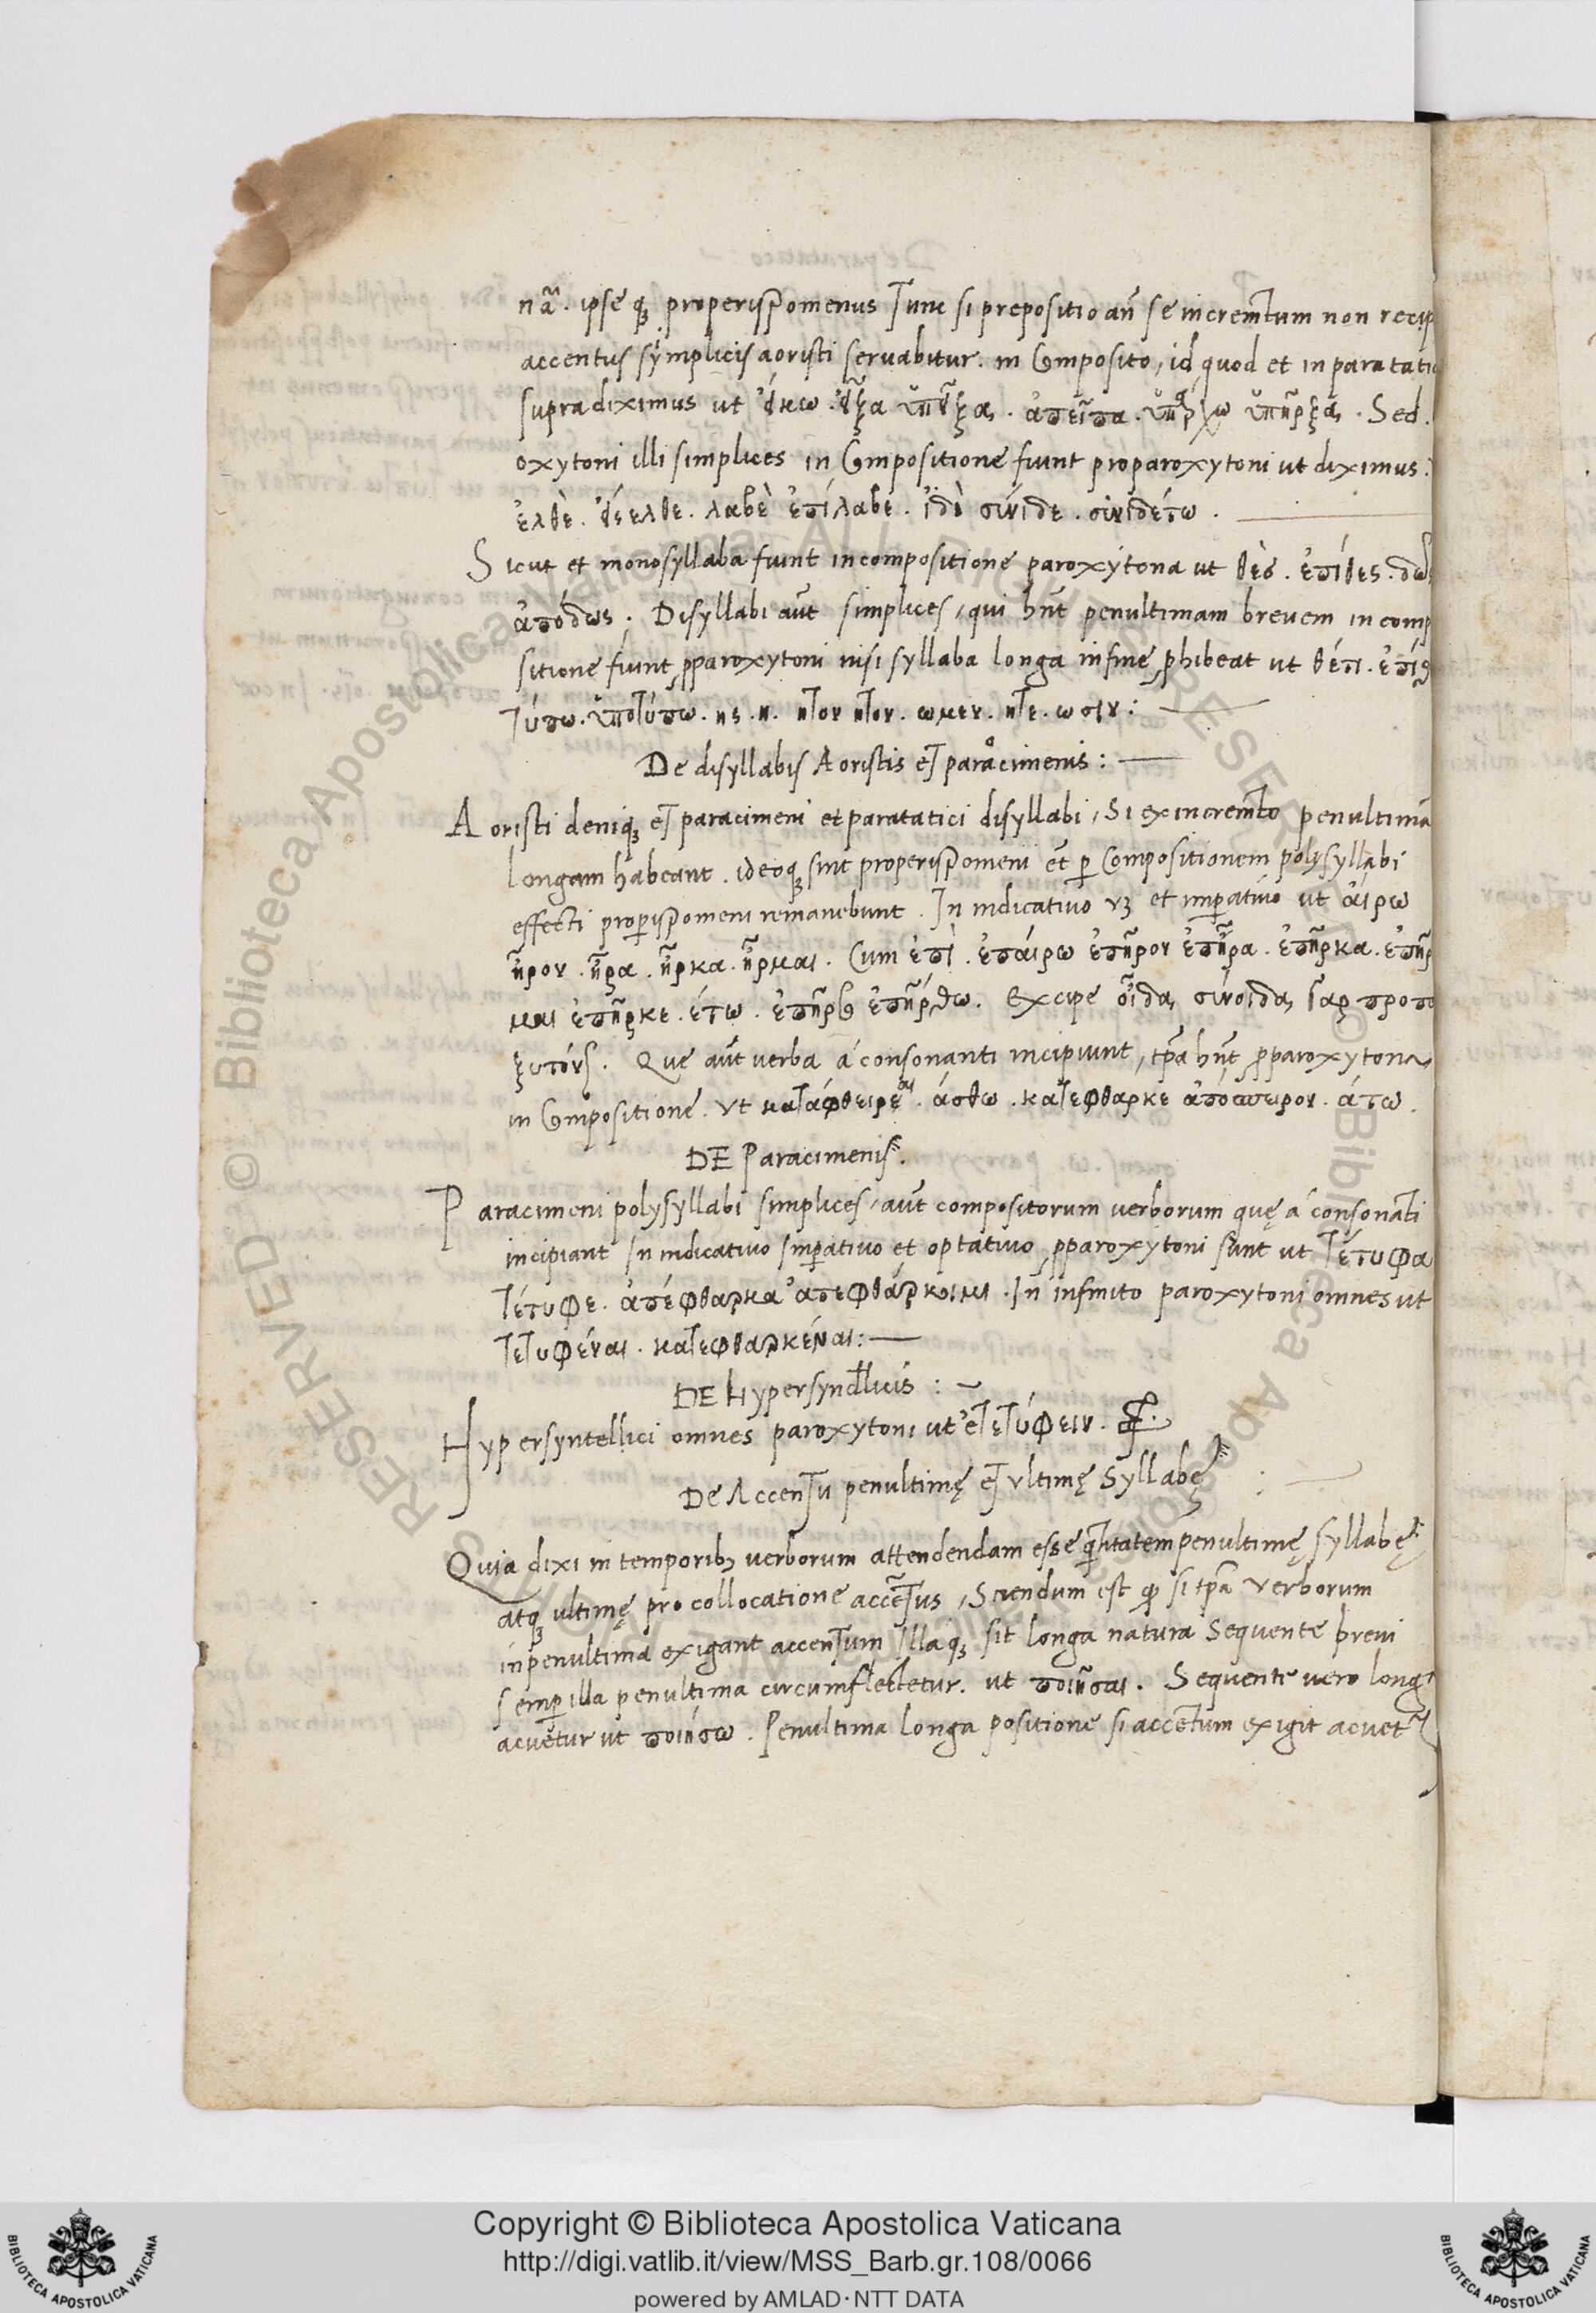 nã. ipse q3 properispomenus Tunc si prepositio añ se incremtum non recip
accentus symplicis aoristi servabitur. in Composito, id quod et in paratatic
supra diximus ut Sed.
oxytoni illi simplices in Compositione fiunt proparoxytoni ut diximus.
ἐλθὲ. λαβὲ ἐπίλαβε. ἰδὲ σύνιδε. συνιδέτω.
Sicut et monosyllaba fiunt in compositione paroxytona ut θὲσ. ἐπίθες. δὼς
ἀπόδως. Disyllabi aut̃ simplices, qui hñt penultimam brevem in comp
sitione fiunt pparoxytoni nisi syllaba longa in fine phibeat ut
τύπω. ὑποτύπω. ης. η. ητον ητον. ωμεν. ητε. ωσιν:
De disyllabis Aoristis et paracimenis:
Aoristi deniq3 et paracimeni et paratatici disyllabi, Si ex incremto penultimã
longam habeant. ideoq3 sint properispomeni et p Compositionem polysyllabi
effecti properispomeni remanebunt. In indicativo v3 et impativo ut ἀίρω
ἦρον. ἦρα. ἦρκα. ἦρμαι. Cum ἐπὶ. ἐπάιρω ἐπῆρον ἐπῆρα. ἐπῆρκα. ἐπῆρ
μαι ἐπῆρκε. έτω. ἐπήρθω. Excipe οἶδα, σύνοιδα, προπα
ξυτόνς. Que aut̃ verba a consonanti incipiunt, tp̃a hñt pparoxytona
in Compositione. ut άσθω. κατεφθαρκε ἀπόσπειρον. άτω.
DE Paracimenis.
Paracimeni polysyllabi simplices, aut̃ compositorum verborum quę a consonãti
incipiant In indicativo Impativo et optativo pparoxytoni sunt ut τέτυφα
τέτυφε. ἀπέφθαρκα ἀπεφθάρκοιμι. In infinito paroxytoni omnes ut
τετυφέναι. κατεφθαρκέναι:
DE Hypersyndlicis:
Hypersyntellici omnes paroxytoni ut ἐτετύφειν.
De Accentu penultimę et vltimę Syllabę
Quia dixi in temporib3 verborum attendendam esse qtitatem penultimę syllabę
atq3 ultimę pro collocatione accẽtus, Sciendum est q si tp̃a verborum
in penultima exigant accentum Illaq3 sit longa natura Sequente brevi
semp illa penultima circumflectetur. ut ποιῆσαι. Sequente vero long
acuetur ut ποιήσω. Penultima longa positione si accẽtum exigit acuet
Copyright © Biblioteca Apostolica Vaticana
http://digi.vatlib.it/view/MSS_Barb.gr.108/0066
powered by AMLAD·NTT DATA